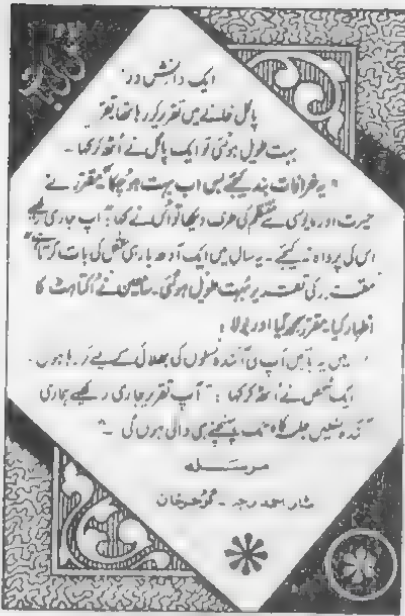 ایک دانش ور
پاگل خانے میں تقریر کر رہا تھا، تقریر
بہت طویل ہو گئی تو ایک پاگل نے اُٹھ کر کہا۔
"یہ خرافات بند کیجئے بس اب بہت ہو چکا" مقرر نے
حیرت اور مایوسی سے منتظم کی طرف دیکھا تو اُس نے کہا: آپ جاری رکھیے
اس کی پرواہ نہ کیجئے۔ یہ سال میں ایک آدھ بار ہی عقل کی بات کرتا ہے"
مقرر کی تقریر بہت طویل ہو گئی۔ سامعین نے اُکتاہٹ کا
اظہار کیا۔ مقرر بگڑ گیا اور بولا:
میں یہ باتیں آپ کی آئندہ نسلوں کی بھلائی کے لیے کر رہا ہوں۔
ایک شخص نے اُٹھ کر کہا: "آپ تقریر جاری رکھیے ہماری
آئندہ نسلیں جلسہ گاہ تک پہنچنے ہی والی ہوں گی۔"
مرسلہ
نثار احمد راجہ۔ گوجرخان